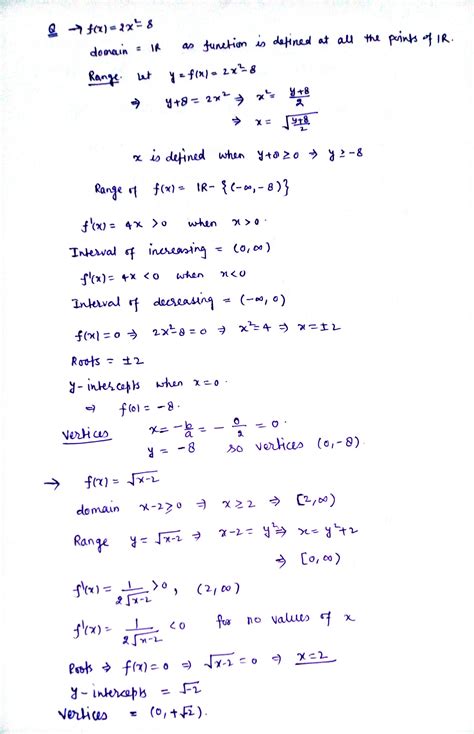 Q → f(x) = 2x²-8
domain = IR as function is defined at all the points of IR.
Range. Let y = f(x) = 2x²-8
⇒ y+8 = 2x² ⇒ x² = (y+8)/2
⇒ x = √((y+8)/2)
x is defined when y+8≥0 ⇒ y≥-8
Range of f(x) = IR-{(-∞,-8)}
f'(x) = 4x >0 when x>0.
Interval of increasing = (0,∞)
f'(x) = 4x <0 when x<0
Interval of decreasing = (-∞,0)
f(x)=0 ⇒ 2x²-8=0 ⇒ x²=4 ⇒ x=±2
Roots = ±2
y-intercepts when x=0.
⇒ f(0) = -8.
Vertices x = -b/a = -0/2 = 0.
y = -8 so vertices (0,-8).
→ f(x) = √x-2
domain x-2≥0 ⇒ x≥2 ⇒ [2,∞)
Range y = √x-2 ⇒ x-2=y² ⇒ x=y²+2
⇒ [0,∞)
f'(x) = 1/(2√x-2) >0, (2,∞)
f'(x) = 1/(2√x-2) <0 for no values of x
Roots ⇒ f(x)=0 ⇒ √x-2=0 ⇒ x=2
y-intercepts = √-2
Vertices = (0,+√2).